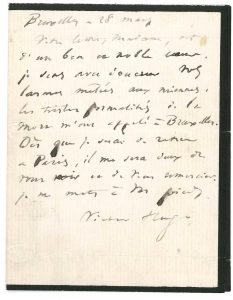 Bruxelles - 28 mars
Votre lettre, Madame, est
d'un bon et noble cœur.
je sens avec douceur vos
larmes mêlées aux miennes.
les tristes formalités de la
mort m'ont appelé à Bruxelles.
Dès que je serai de retour
à Paris, il me sera doux de
vous voir et de vous remercier.
je me mets à vos pieds.
Victor Hugo